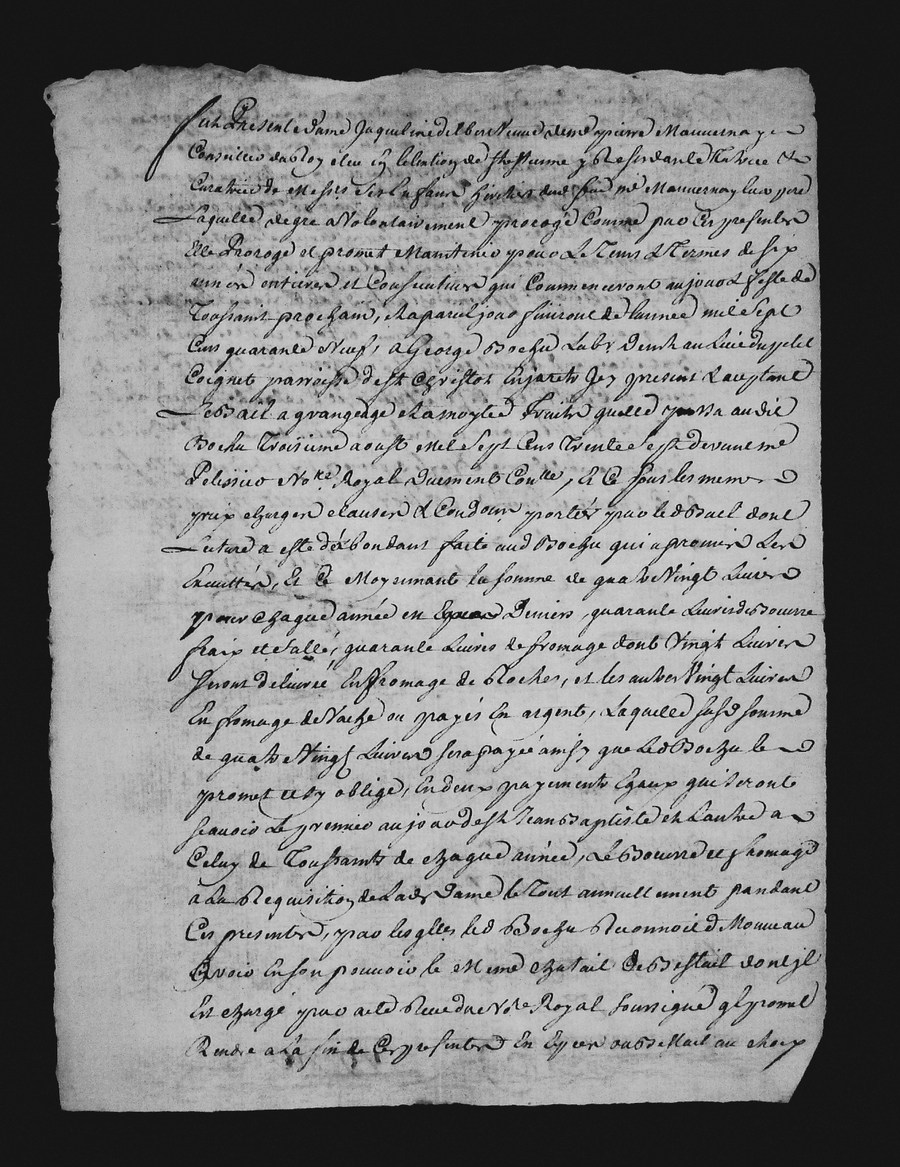 fut Presente Dame Jaqueline dilbert veuve de me pierre Mauvernay
Conseiller du Roy eleu en lelection de st estienne y Residante tutrice &
Curatrice de Messrs ses Enfans heritiers dud feu me Mauvernay leur pere
Laquelle de gre a volontairement proroge Comme par Ces presentes
Elle Proroge et promet Maintenir pour Le Tems & Termes de six
années entieres et Consecutives qui Commenceront au jour & feste de
Toussaint prochain, & a pareil jour finiront de lannee mil sept
Cens quarante Neuf, a George Bochu Labr Demt au Lieu du petit
Coignet parroisse de st Christot En jarests Icy present & aceptant
Le Bail a grangeage & a moytié Fruits quelle passa audit
Bochu Troisieme aoust Mil sept Cens Trente sept devant me
Pelissier Nore Royal Duement Conlle, Et Ce sous les memes
prix charges clauses & Condons portés par led Bail dont
Lecture a esté d'abondant faite aud Bochu qui a promis Les
Executter, Et Ce Moyennant la somme de quatre Vingt Livres
pour chaque année en Deniers, quarante Livres de Beurre
fraix et sallé, quarante Livres de fromage dont Vingt Livres
seront delivrée En fromage de Roches, et les autres Vingt Livres
En fromage de Vache ou payés En argent, Laquelle susd somme
de quatre Vingt Livres sera payé ainsy que Led Bochu le
promet et sy oblige, En deux payements Egaux qui seront
scavoir Le premier au jour de st Jean Baptiste et Lautre a
Celuy de Toussaints de chaque année, Le Beurre et fromage
a La Requisition de Lade Dame le Tout annuellement pandant
Ces presentes, par lesqlles led Bochu Reconnoit de Nouveau
avoir En son pouvoir le Meme chatail de Bestail dont jl
Est chargé par acte Receu du Nore Royal soussigné ql promet
Rendre a La fin de Ces presentes En Espece ou Betail au choix